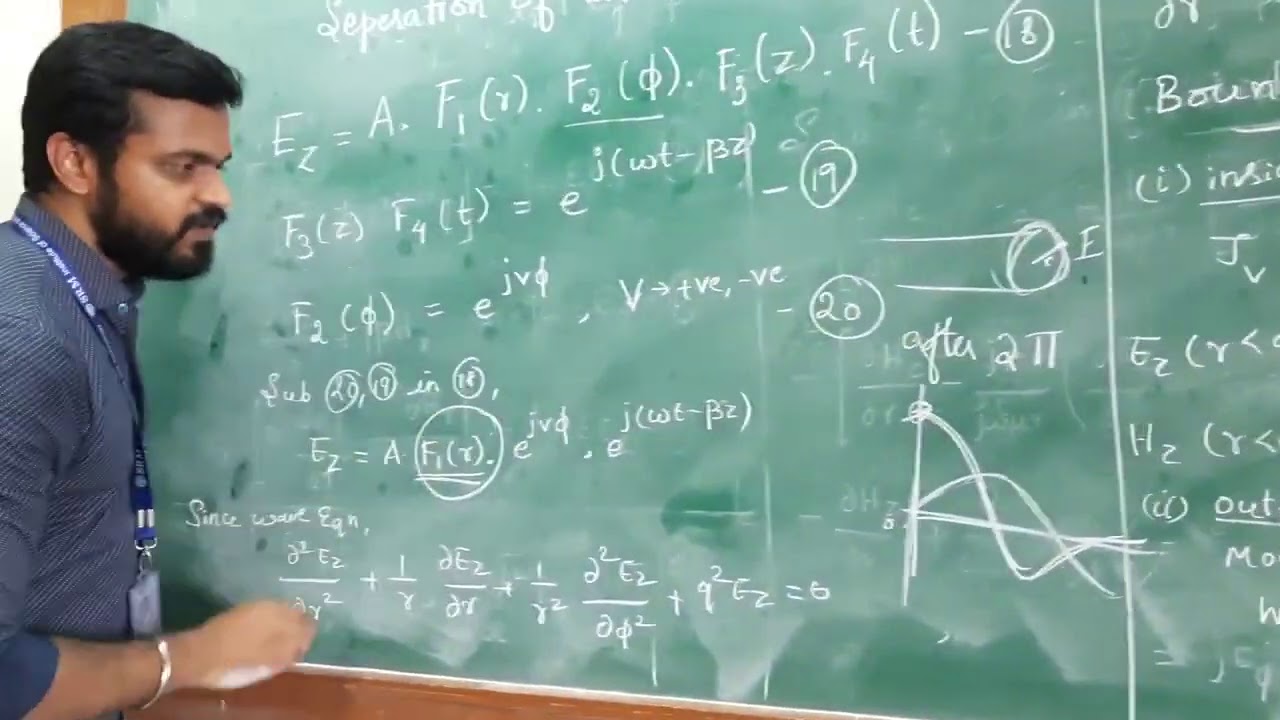 Seperation of
E_z = A. F_1(r). F_2(ϕ). F_3(z). F_4(t) - (18)
F_3(z) F_4(t) = e^{j(ωt-βz)} - (19)
F_2(ϕ) = e^{jvϕ}, V→+ve,-ve - (20)
Sub (20),(19) in (18),
E_z = A. F_1(r). e^{jvϕ}. e^{j(ωt-βz)}
Since wave Eqn,
∂²E_z/∂r² + 1/r ∂E_z/∂r + 1/r² ∂²E_z/∂ϕ² + q²E_z = 0
E
after 2π
∂r
Boun
(i) insi
J_v
E_z (r<
H_z (r<
(ii) out
Mo
SRM Institute of Science